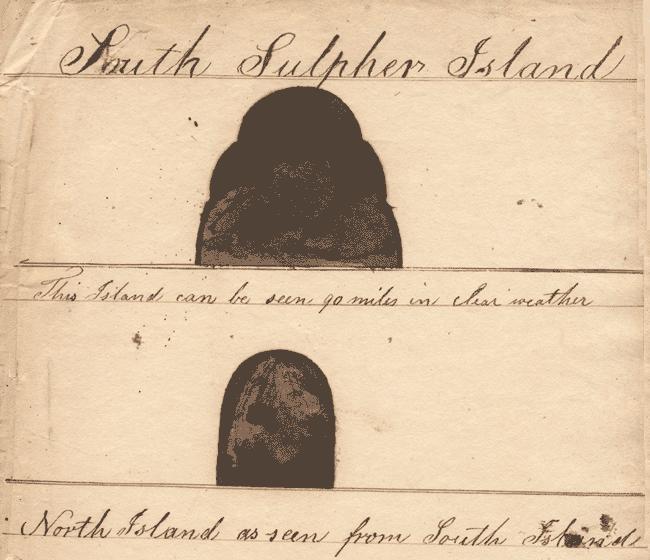 South Sulpher Island
This Island can be seen 90 miles in clear weather
North Island as seen from South Island